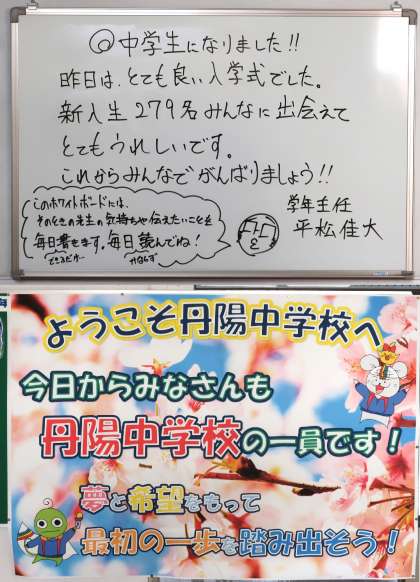 ◎中学生になりました!!
昨日は、とても良い入学式でした。
新入生279名みんなに出会えて
とてもうれしいです。
これからみんなでがんばりましょう!!
学年主任
平松佳大
このホワイトボードには、
そのときの先生の気持ちや伝えたいことを
毎日書きます。毎日読んでね!
できるだけ
かならず
ようこそ丹陽中学校へ
今日からみなさんも
丹陽中学校の一員です!
夢と希望をもって
最初の一歩を踏み出そう!